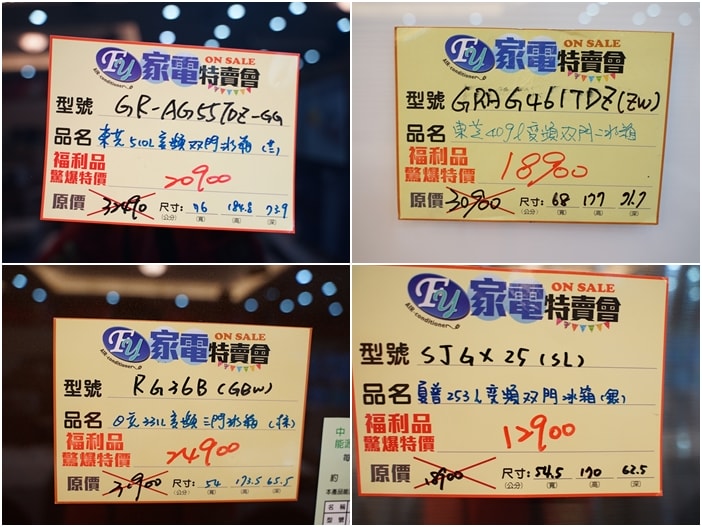 FY 家電特賣會 ON SALE
AIR-conditioner
型號 GR-AG55TDZ-GG
品名 東芝510L變頻双門冰箱
福利品
驚爆特價 20900
原價 尺寸: 76 184.8 73.9
(公分) (寬) (高) (深)
FY 家電特賣會 ON SALE
AIR-conditioner
型號 GRAG461TDZ(ZW)
品名 東芝409L變頻双門冰箱
福利品
驚爆特價 18900
原價 30900 尺寸: 68 177 71.7
(公分) (寬) (高) (深)
FY 家電特賣會 ON SALE
AIR-conditioner
型號 RG36B(GBW)
品名 日立331L變頻三門冰箱
福利品
驚爆特價 24900
原價 尺寸: 54 173.5 65.5
(公分) (寬) (高) (深)
中
能源
每
約
本產品能
名稱
型號
FY 家電特賣會 ON SALE
AIR-conditioner
型號 SJGX25(SL)
品名 夏普253L變頻双門冰箱(銀)
福利品
驚爆特價 12900
原價 18900 尺寸: 54.5 170 62.5
(公分) (寬) (高) (深)